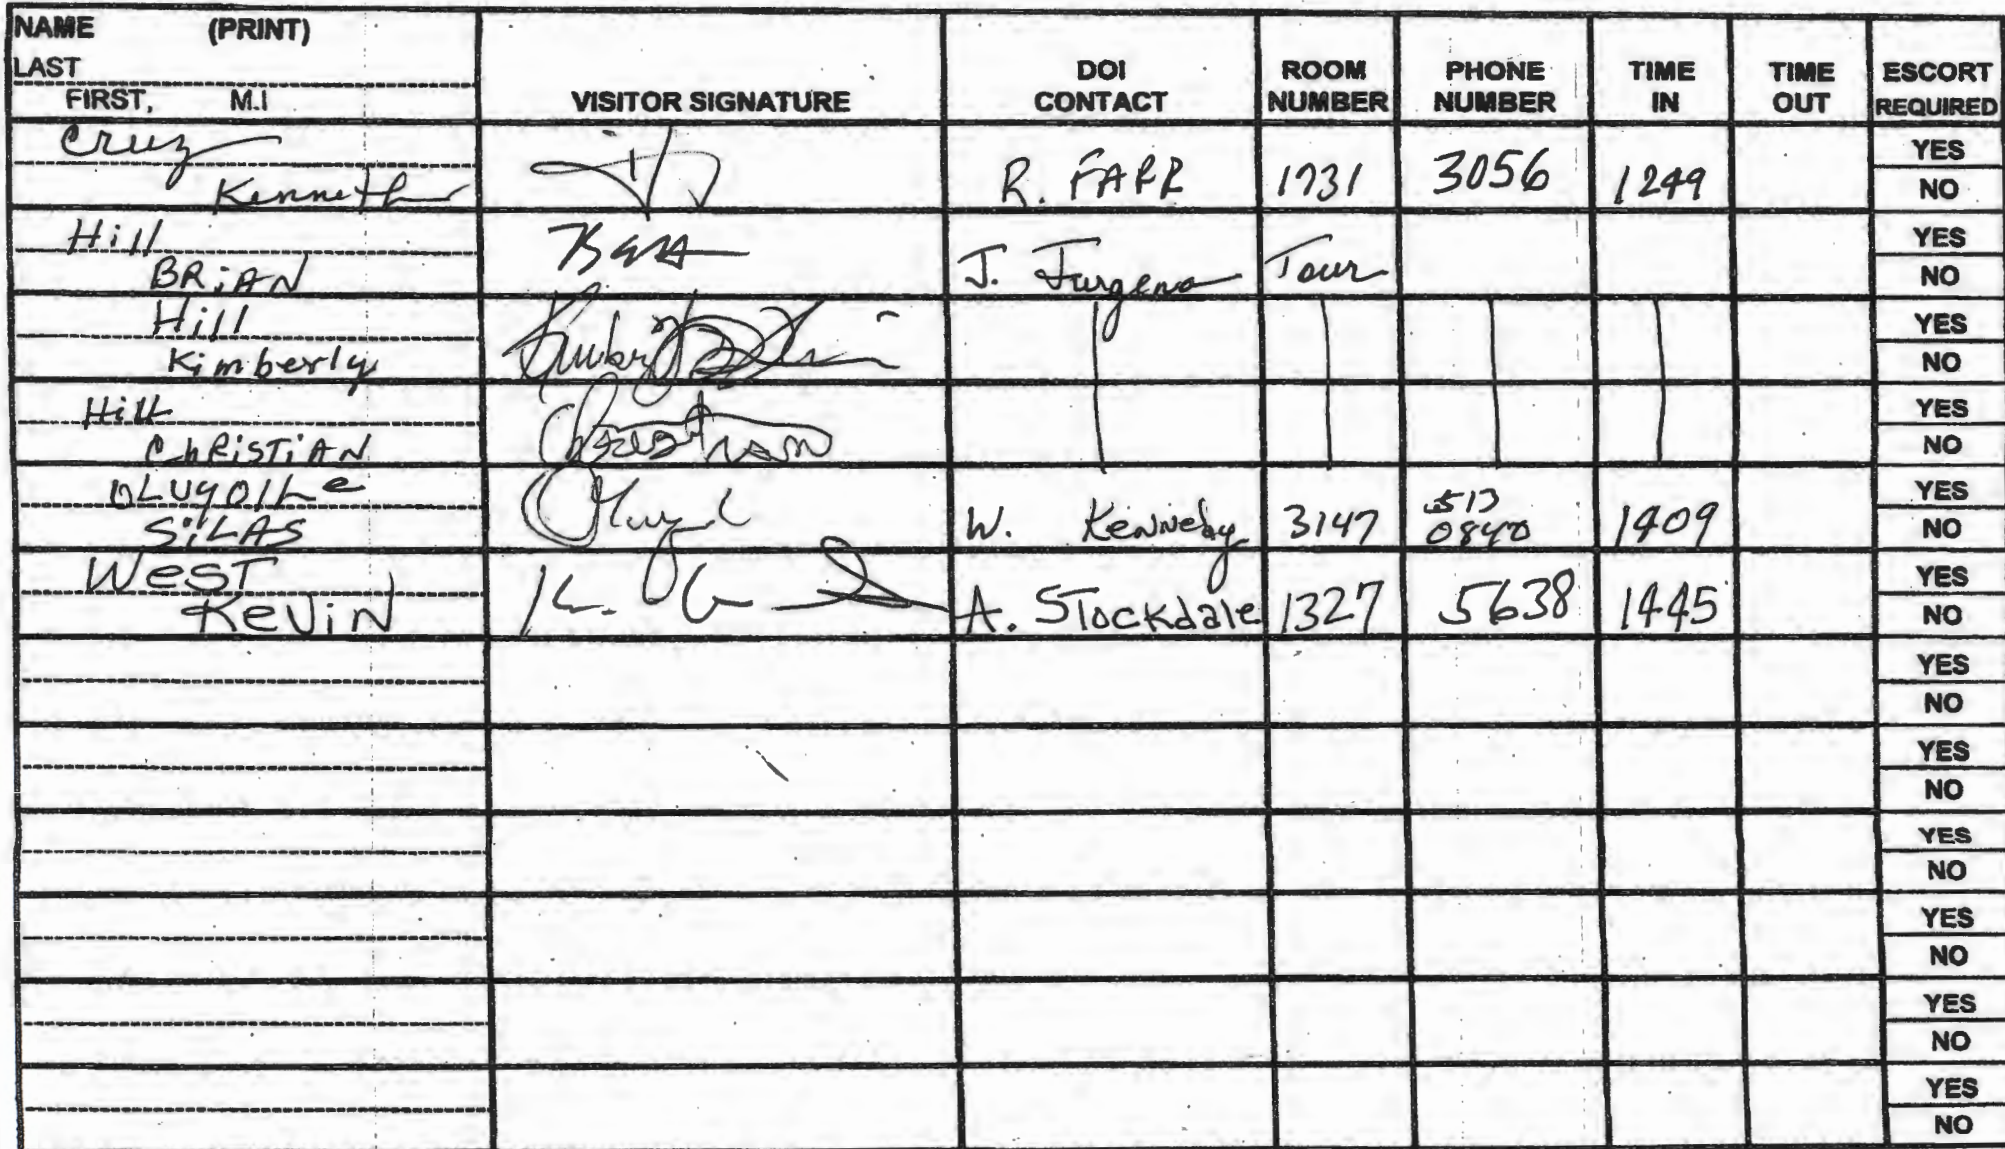 NAME (PRINT)
LAST
FIRST, M.I
VISITOR SIGNATURE
DOI CONTACT
ROOM NUMBER
PHONE NUMBER
TIME IN
TIME OUT
ESCORT REQUIRED
Cruz
Kenneth
R. FARR 1731 3056 1249
YES
NO
Hill
BRiAN
J. Jurgena Tour
YES
NO
Hill
Kimberly
YES
NO
Hill
ChRiSTiAN Christian
YES
NO
SiLAS
W. Kennedy 3147 513 0840 1409
YES
NO
WesT
KeViN
A. STockdale 1327 5638 1445
YES
NO
YES
NO
YES
NO
YES
NO
YES
NO
YES
NO
YES
NO